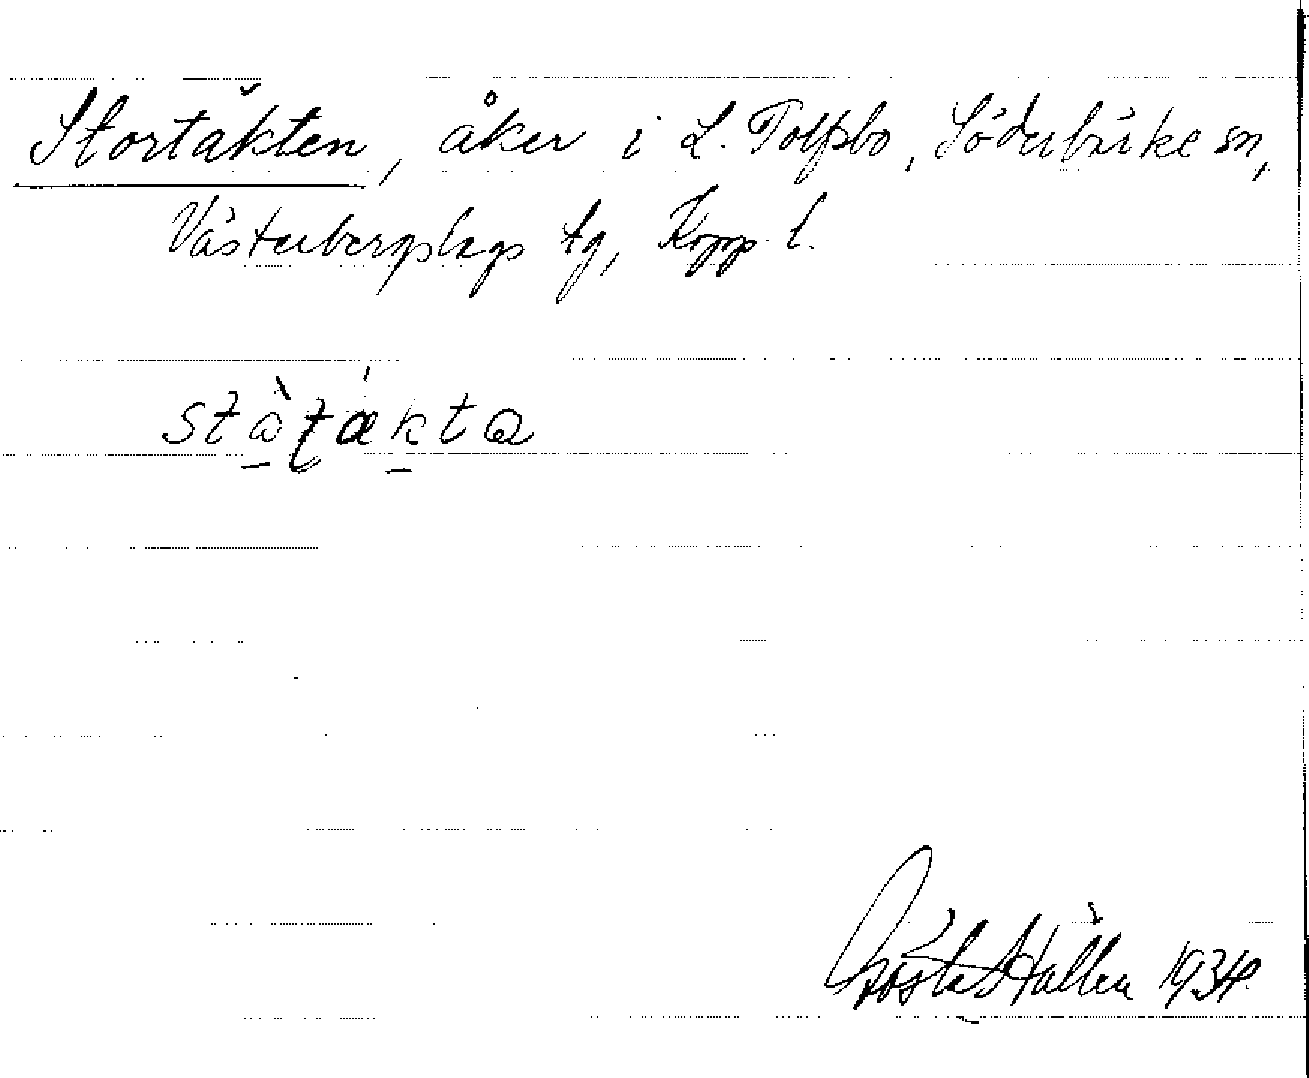 Stortäkten, åker i L. Tolfsbo, Söderbärke sn,
Västerbergslags tg, Kopp. l.
Gösta Hallén 1934.